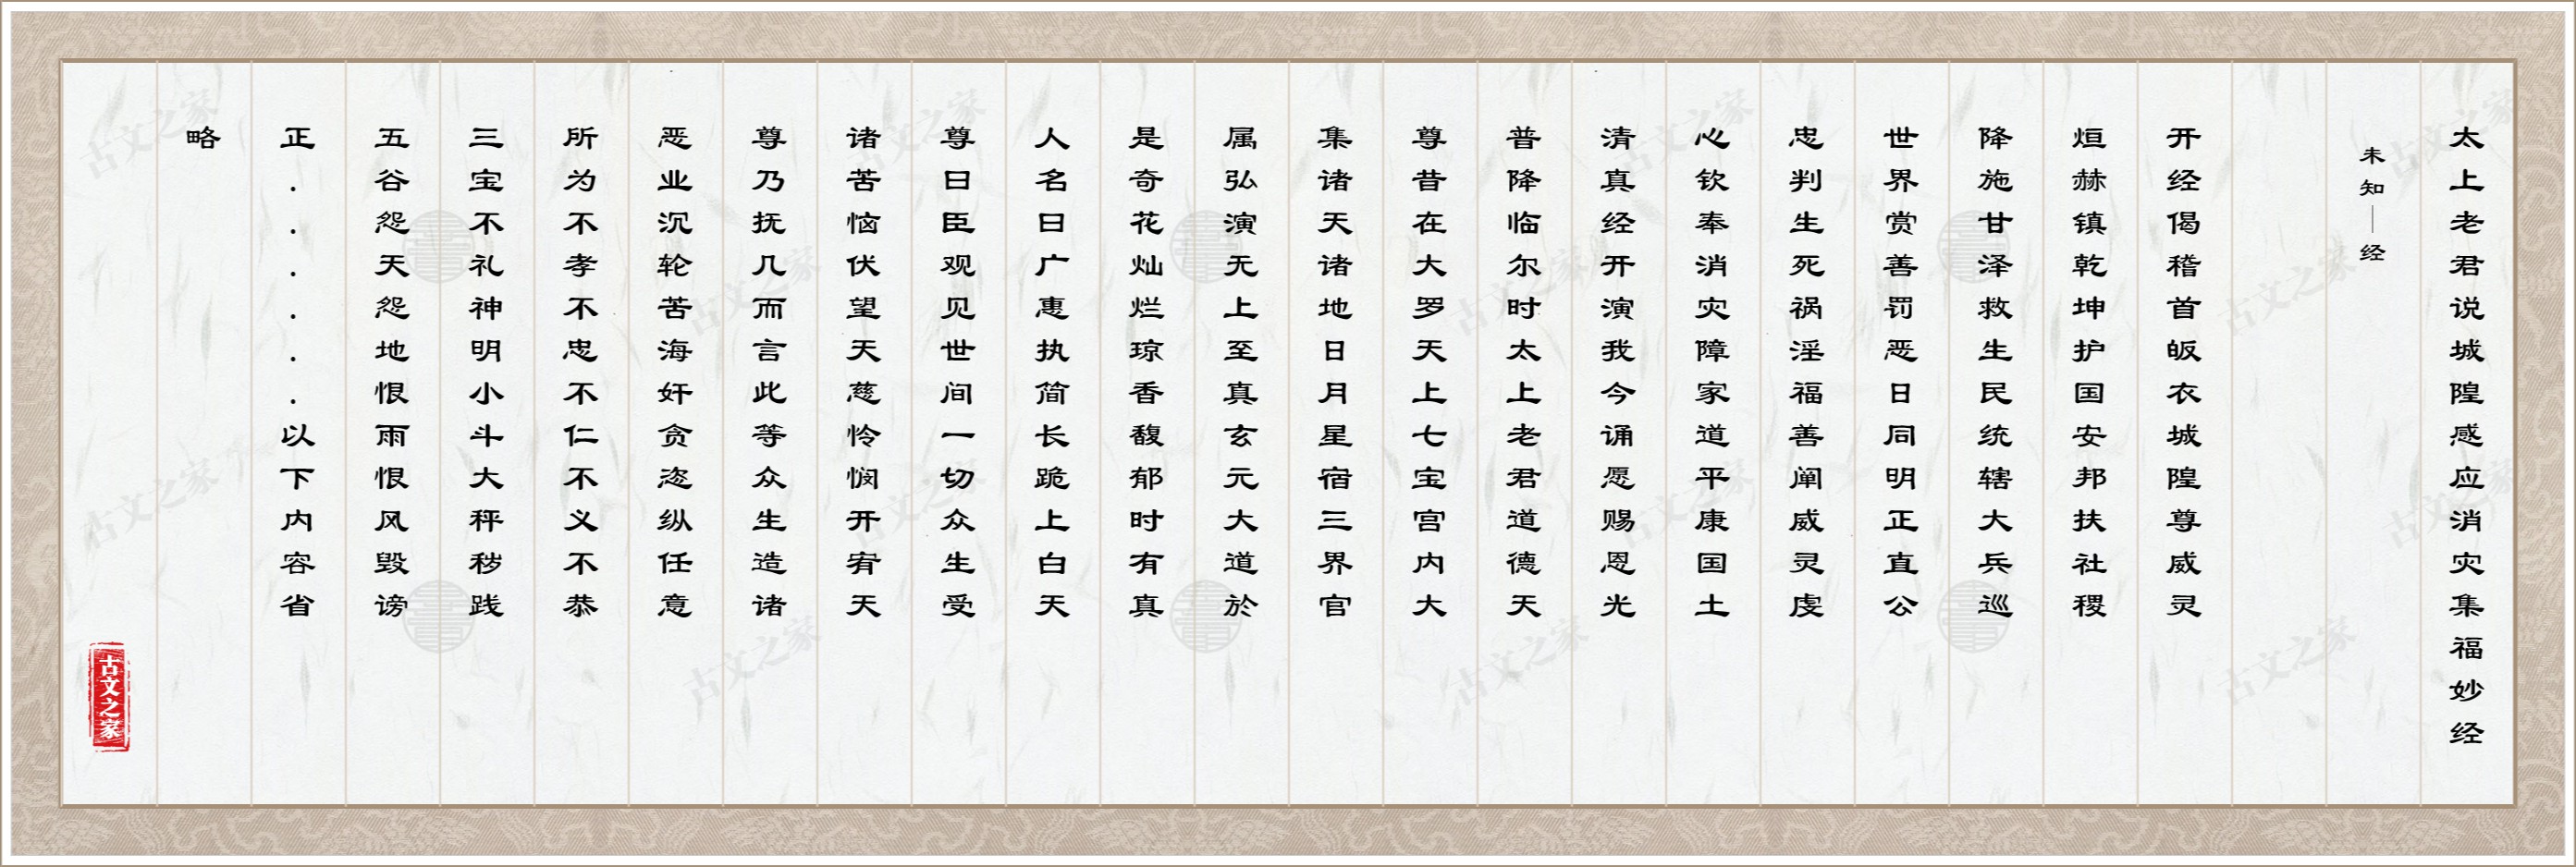 太上老君说城隍感应消灾集福妙经
未知｜经
开经偈稽首皈衣城隍尊威灵
烜赫镇乾坤护国安邦扶社稷
降施甘泽救生民统辖大兵巡
世界赏善罚恶日同明正直公
忠判生死祸淫福善阐威灵虔
心钦奉消灾障家道平康国土
清真经开演我今诵愿赐恩光
普降临尔时太上老君道德天
尊昔在大罗天上七宝宫内大
集诸天诸地日月星宿三界官
属弘演无上至真玄元大道於
是奇花灿烂琼香馥郁时有真
人名曰广惠执简长跪上白天
尊曰臣观见世间一切众生受
诸苦恼伏望天慈怜悯开宥天
尊乃抚几而言此等众生造诸
恶业沉轮苦海奸贪恣纵任意
所为不孝不忠不仁不义不恭
三宝不礼神明小斗大秤秽践
五谷怨天怨地恨雨恨风毁谤
正......以下内容省
略
古文之家